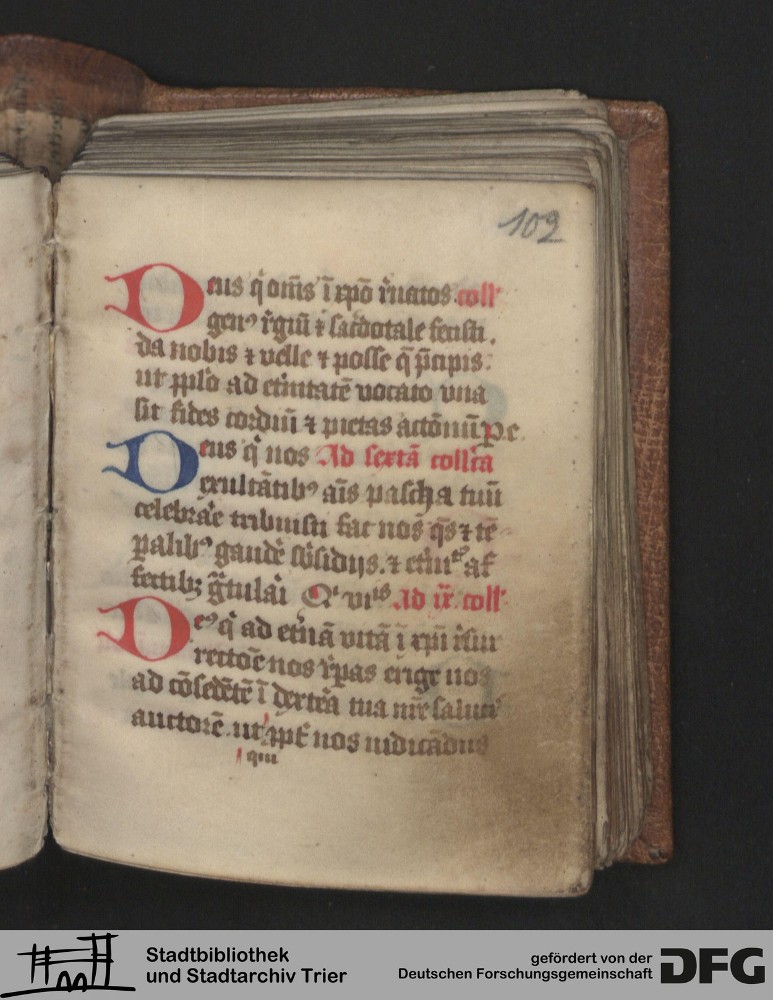 102
Deus q̇ om̅s ı̅ xpō r̄natos coll'
gen⁹ r̄giū ⁊ sac̄dotale fecisti.
da nobis ⁊ velle ⁊ posse q̄ p̄cipis:
ut ppl̄o ad et̄nitatē vocato una
sit fides cordiū ⁊ pietas actōnū P̲e
Deus q̇ nos Ad sextā coll̄ca
exultātib⁹ aīs pascha tuū
celebrāe tribuisti fac nos q̄s ⁊ tē
palib⁹ gaudē sb̄sidijs. ⁊ et̄nit
fectib; g̅tulāi Q' vi
Ad ix coll'
De⁹ q̇ ad et̄nā vitā ı̅ xp̄i r̄sur
rectōe nos r̄pas erige nos
ad cōsedētē ı̅ dext̄ra tua nr̄e salut
auctorē. ut
nos iudicādus
qui
Stadtbibliothek
und Stadtarchiv Trier
gefördert von der
Deutschen Forschungsgemeinschaft
DFG